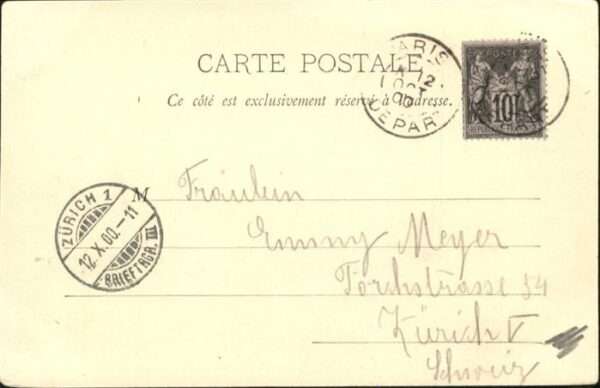 CARTE POSTALE
Ce côté est exclusivement réservé à l'adresse.
PARIS
12
OCT
00
DEPART
10
ZÜRICH 1
12.X.00.-11
BRIEFTRGR. III
M
Fräulein
Emmy Meyer
Forchstrasse 54
Zürich V
Schweiz